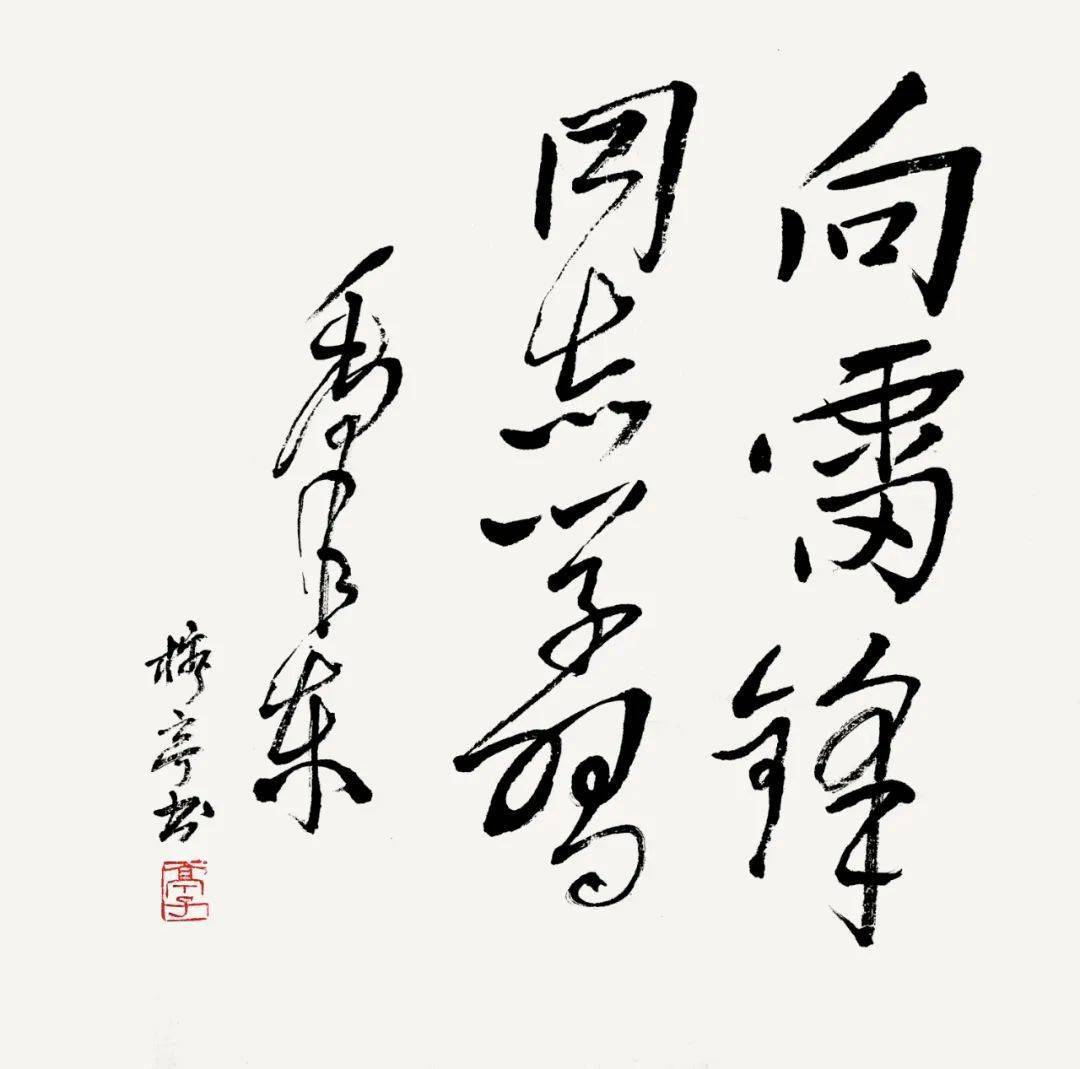 向雷锋
同志学习
毛泽东
亭书